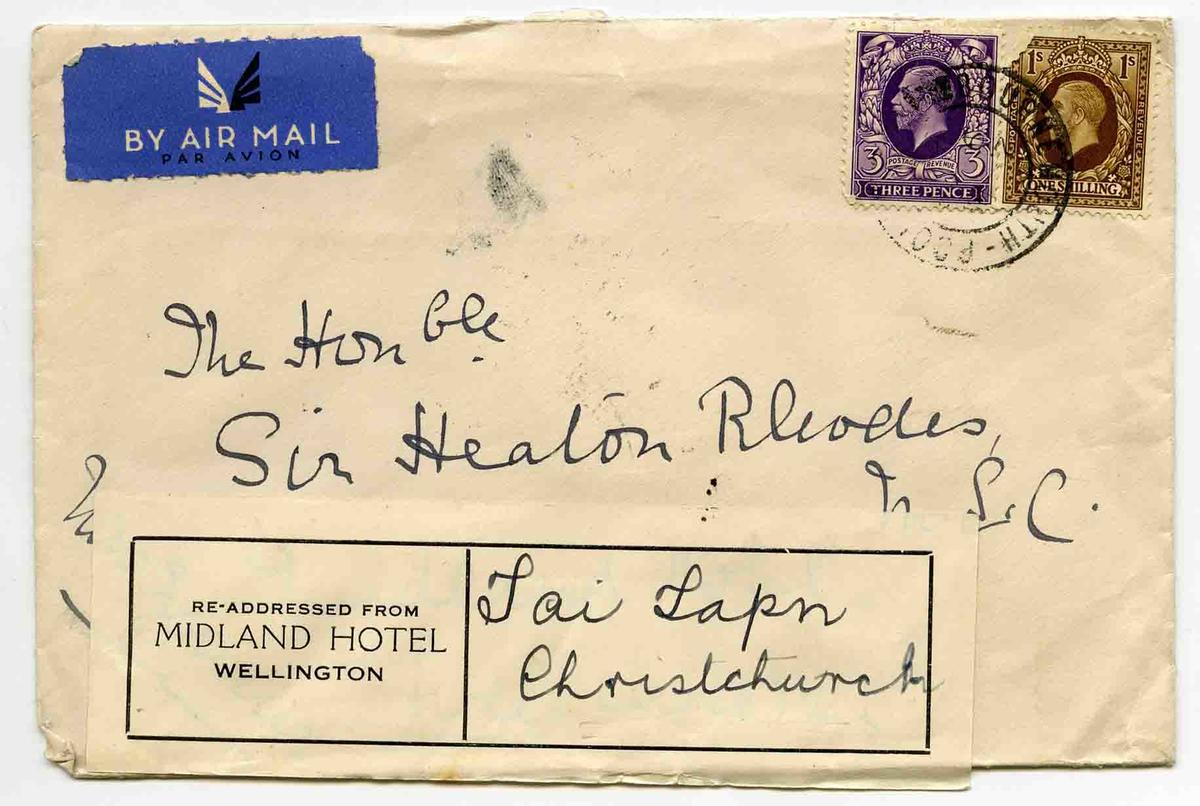 BY AIR MAIL
PAR AVION
3 POSTAGE REVENUE 3
THREE PENCE
1S 1S
POSTAGE REVENUE
ONE SHILLING
The Honble
Sir Heaton Rhodes,
M L.C.
RE-ADDRESSED FROM
MIDLAND HOTEL
WELLINGTON
Tai Tapn
Christchurch